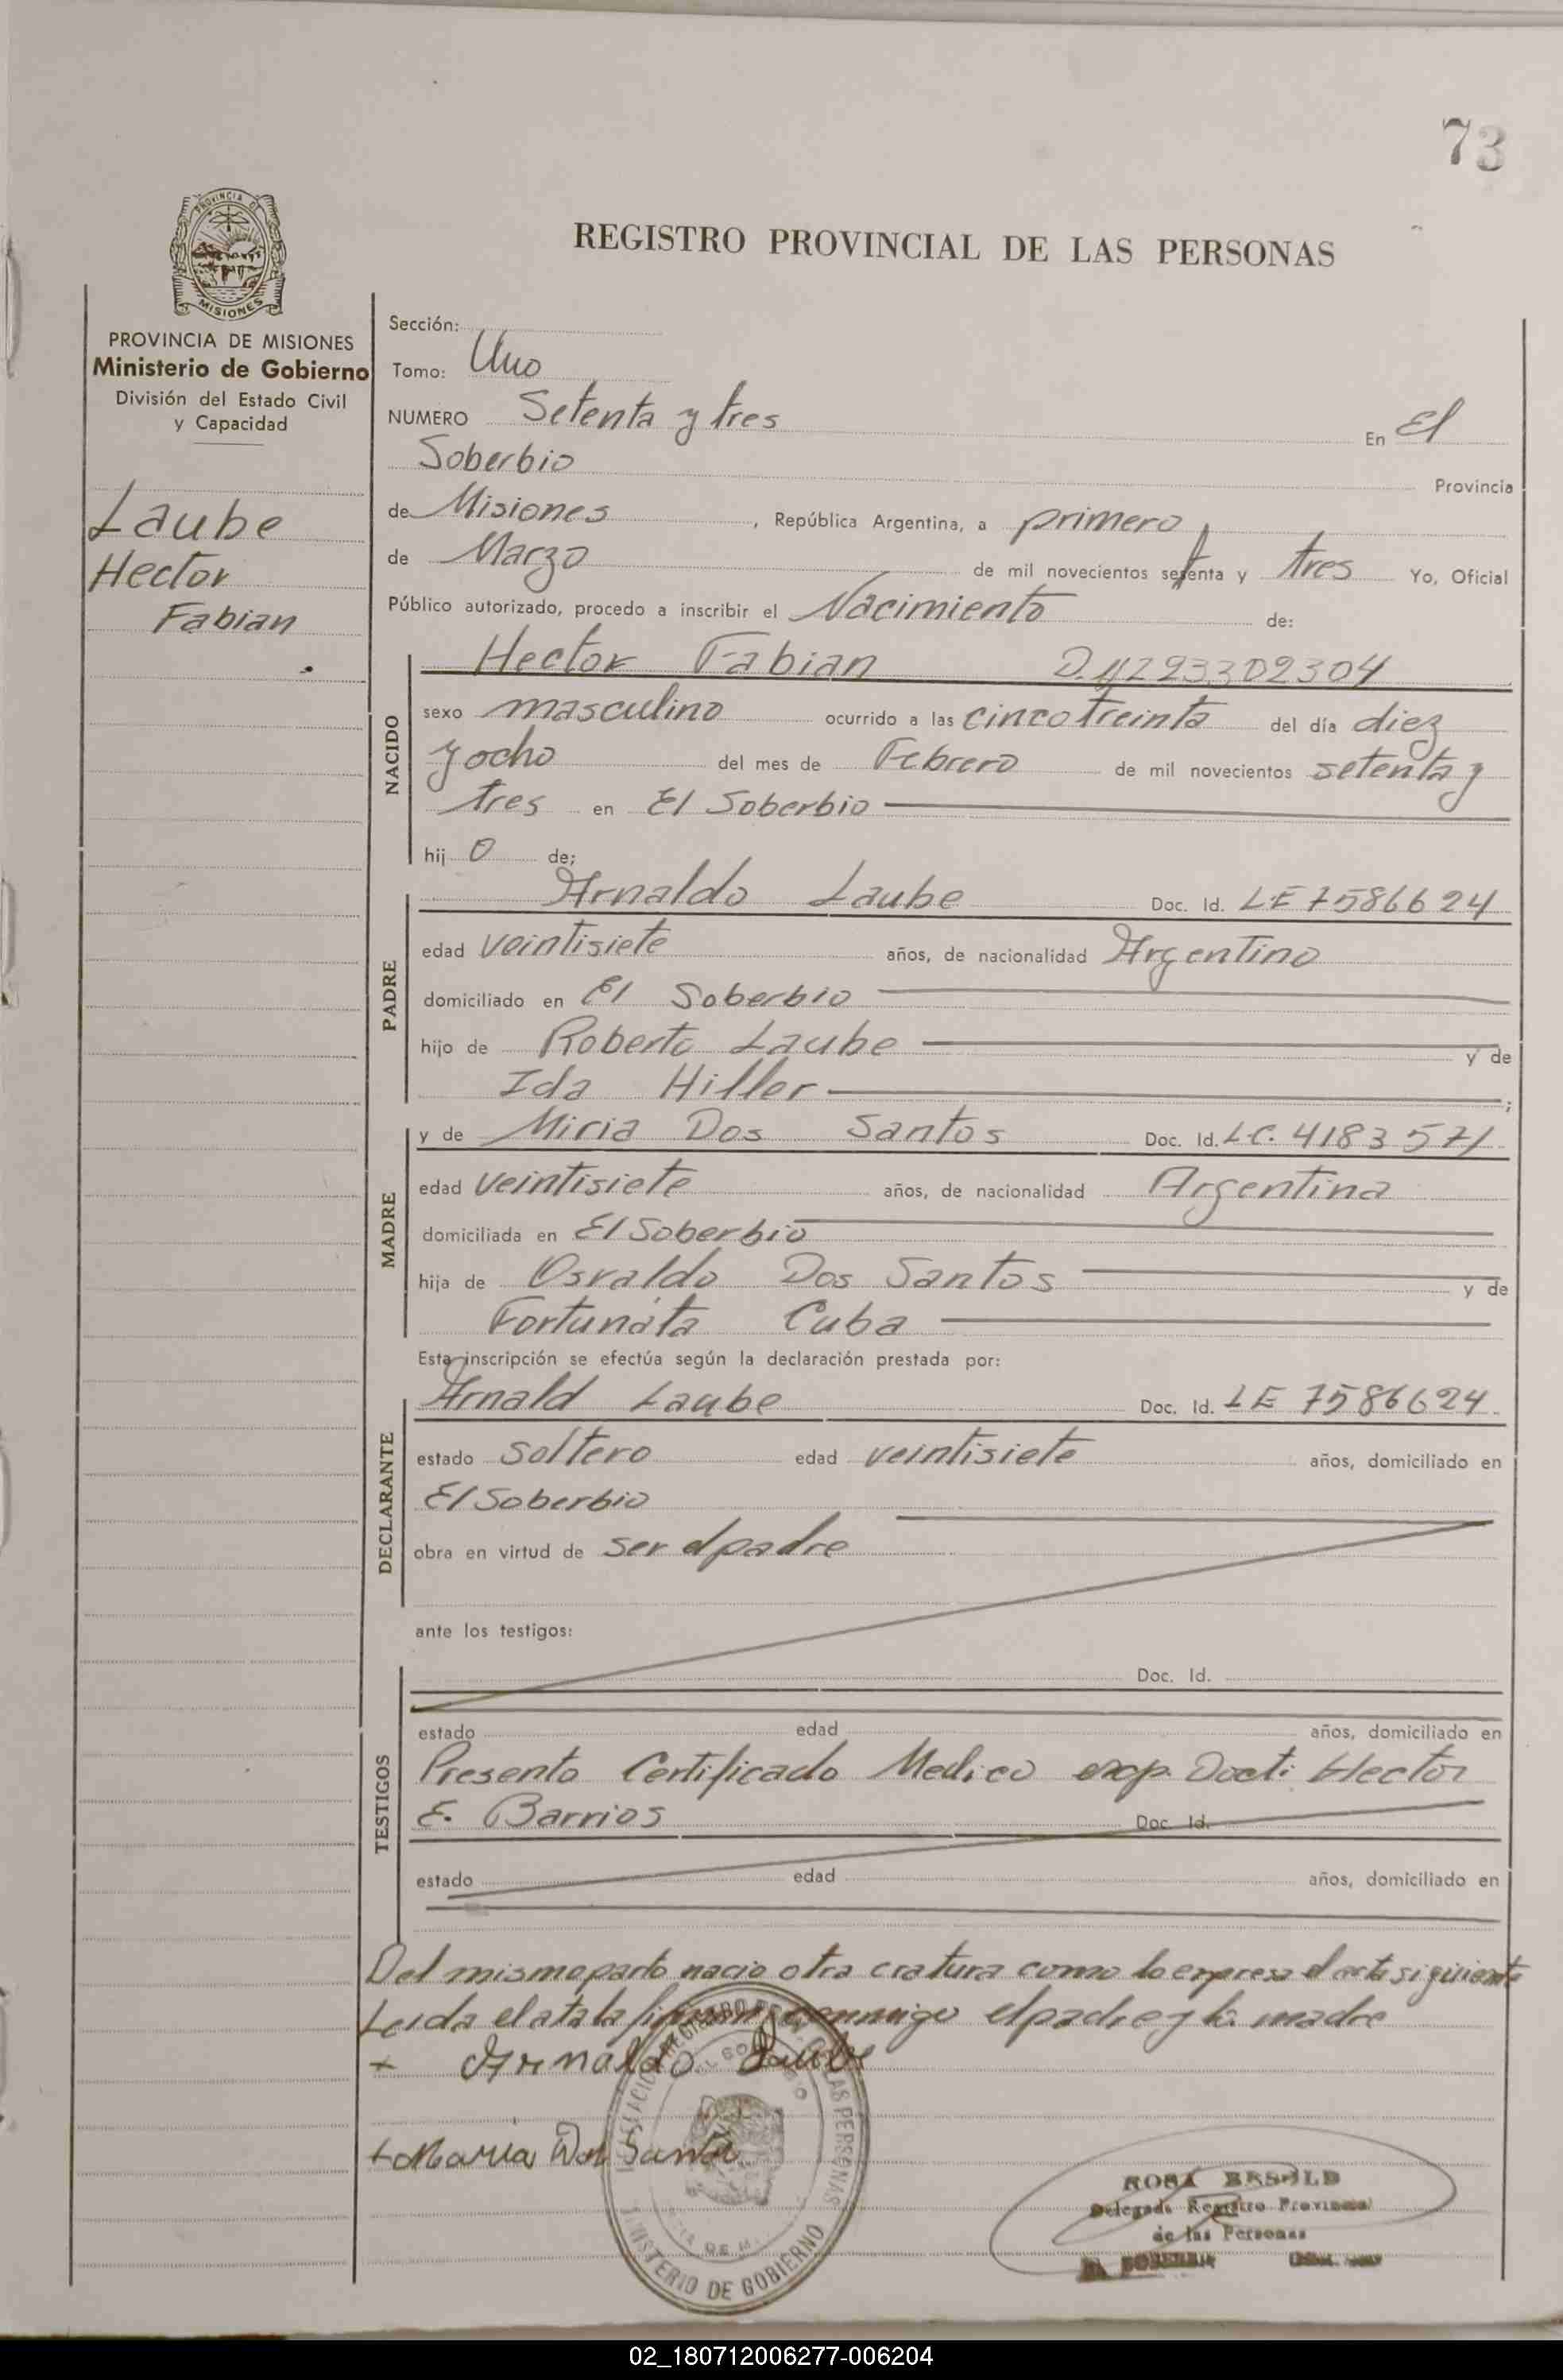 73
PROVINCIA DE
MISIONES
REGISTRO PROVINCIAL DE LAS PERSONAS
PROVINCIA DE MISIONES
Ministerio de Gobierno
División del Estado Civil
y Capacidad
Laube
Hector
Fabian
Sección:
Tomo: Uno
NUMERO Setenta y tres En El
Soberbio Provincia
de Misiones, República Argentina, a primero
de Marzo de mil novecientos setenta y tres Yo, Oficial
Público autorizado, procedo a inscribir el Nacimiento de:
NACIDO
Hector Fabian
sexo masculino ocurrido a las cinco treinta del día diez
y ocho del mes de Febrero de mil novecientos setenta y
tres en El Soberbio
hij o de;
PADRE
Arnaldo Laube Doc. Id. LE 7586624
edad veintisiete años, de nacionalidad Argentino
domiciliado en El Soberbio
hijo de Roberto Laube y de
Ida Hiller;
MADRE
y de Miria Dos Santos Doc. Id. L.C. 4183571
edad veintisiete años, de nacionalidad Argentina
domiciliada en El Soberbio
hija de Osvaldo Dos Santos y de
Fortunata Cuba
Esta inscripción se efectúa según la declaración prestada por:
DECLARANTE
Arnald Laube Doc. Id. LE 7586624.
estado soltero edad veintisiete años, domiciliado en
El Soberbio
obra en virtud de ser el padre
ante los testigos:
TESTIGOS
Doc. Id.
estado edad años, domiciliado en
Presento Certificado Medico Hector
E. Barrios Doc. Id.
estado edad años, domiciliado en
Del mismo parto nacio otra cratura como lo expresa el acta siguiente
Leida el ata la firman conmigo el padre y la madre
+ Arnaldo Laube
+ Maria Dos Santos
MINISTERIO DE GOBIERNO
LAS PERSONAS
ROSA
Delegada Registro Provincial
de las Personas
EL SOBERBIO
02_180712006277-006204